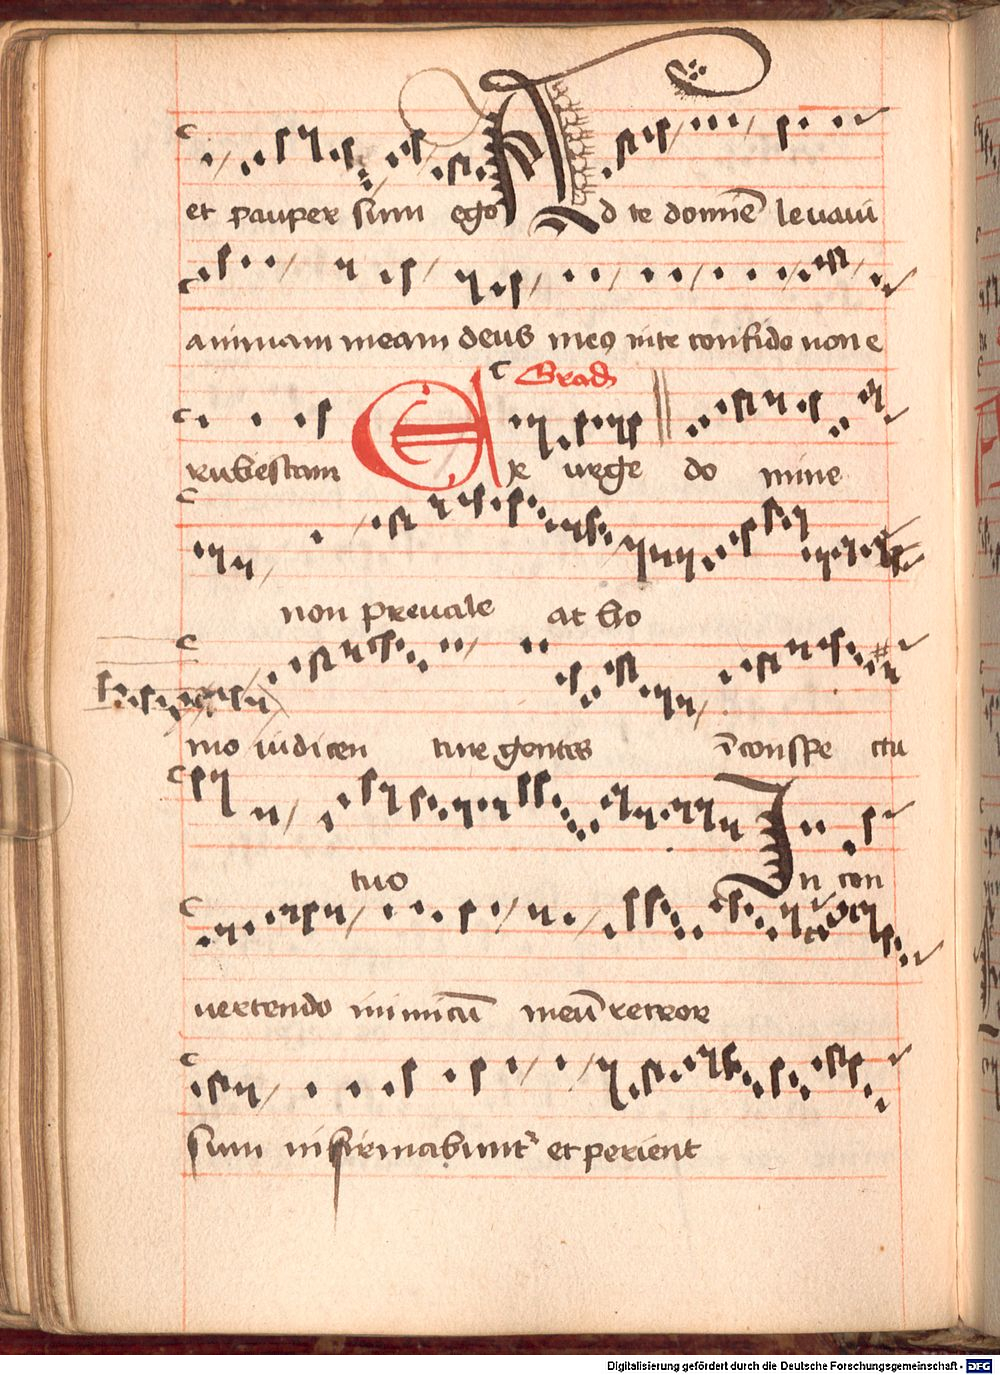 et pauper sum ego Ad te domīe leuaui
animam meam deus meꝰ inte confido non e
Grad
rubescam Exurge do mine
non preuale at ho
mo iudicen ture gentes ī conspe ctu
tuo In con
uertendo inimicū meū retror
sum infirmabunt᷑ et perient
Digitalisierung gefördert durch die Deutsche Forschungsgemeinschaft - DFG